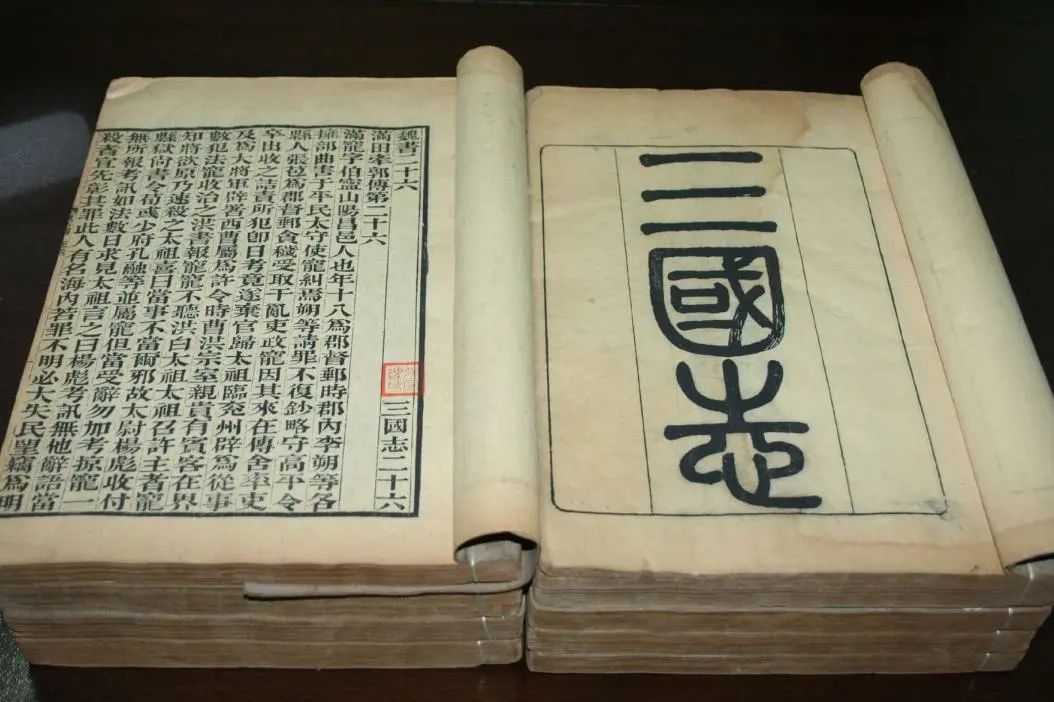 三國志
魏書二十六 三國志二十六
滿田牽郭傳第二十六
滿寵字伯寧山陽昌邑人也年十八爲郡督郵時郡內李朔等各
擁部曲害于平民太守使寵糾焉朔等請罪不復鈔略守高平令
縣人張苞爲郡督郵貪穢受取干亂吏政寵因其來在傳舍率吏
卒出收之詰責所犯卽日考竟遂棄官歸太祖臨兗州辟爲從事
及爲大將軍辟署西曹屬爲許令時曹洪宗室親貴有賓客在界
數犯法寵收治之洪書報寵寵不聽洪白太祖太祖召許主者寵
知將欲原乃速殺之太祖喜曰當事不當爾邪故太尉楊彪收付
縣獄尚書令荀彧少府孔融等並屬寵但當受辭勿加考掠寵一
無所報考訊如法數日求見太祖言之曰楊彪考訊無他辭語當
殺者宜先彰其罪此人有名海內若罪不明必大失民望竊爲明